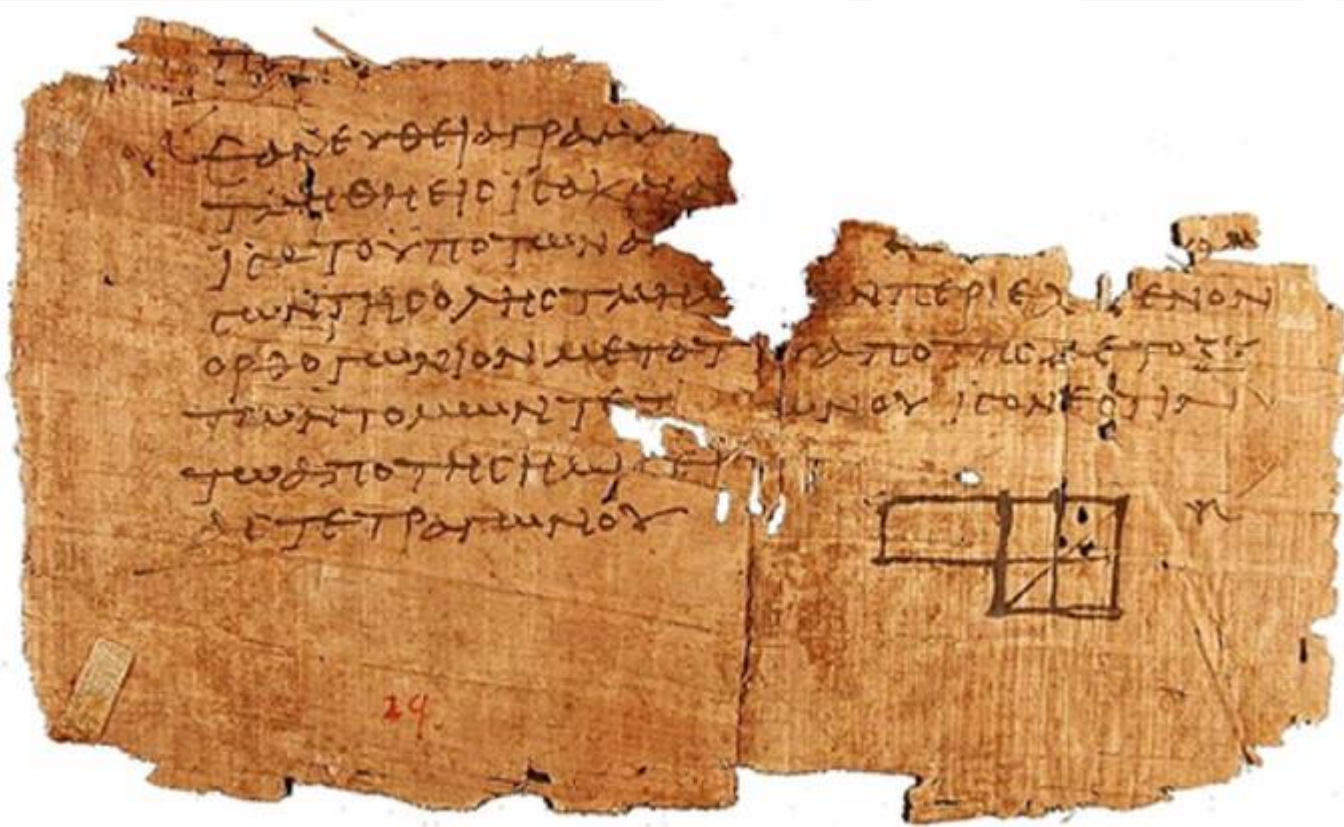 ΕΑΝ ΕΥΘΕΙΑ ΓΡΑΜ
ΤΜΗΘΗ ΕΙϹ ΙϹΑ ΚΑΙ
ΙϹΑ ΤΟ ΥΠΟ ΤΩΝ
ϹΩΝ ΤΗϹ ΟΛΗϹ ΤΜΗ Ν ΠΕΡΙΕΧ ΕΝΟΝ
ΟΡΘΟΓΩΝΙΟΝ ΜΕΤΑ Τ ΑΠΟ ΤΗϹ ΜΕΤΟΞΥ
ΤΩΝ ΤΟΜΩΝ ΤΕΤ ΩΝΟΥ ΙϹΟΝ ΕϹΤΙΝ
ΤΩ ΑΠΟ ΤΗϹ ΗΜΙ
ΑϹ ΤΕΤΡΑΓΩΝΟΥ
29